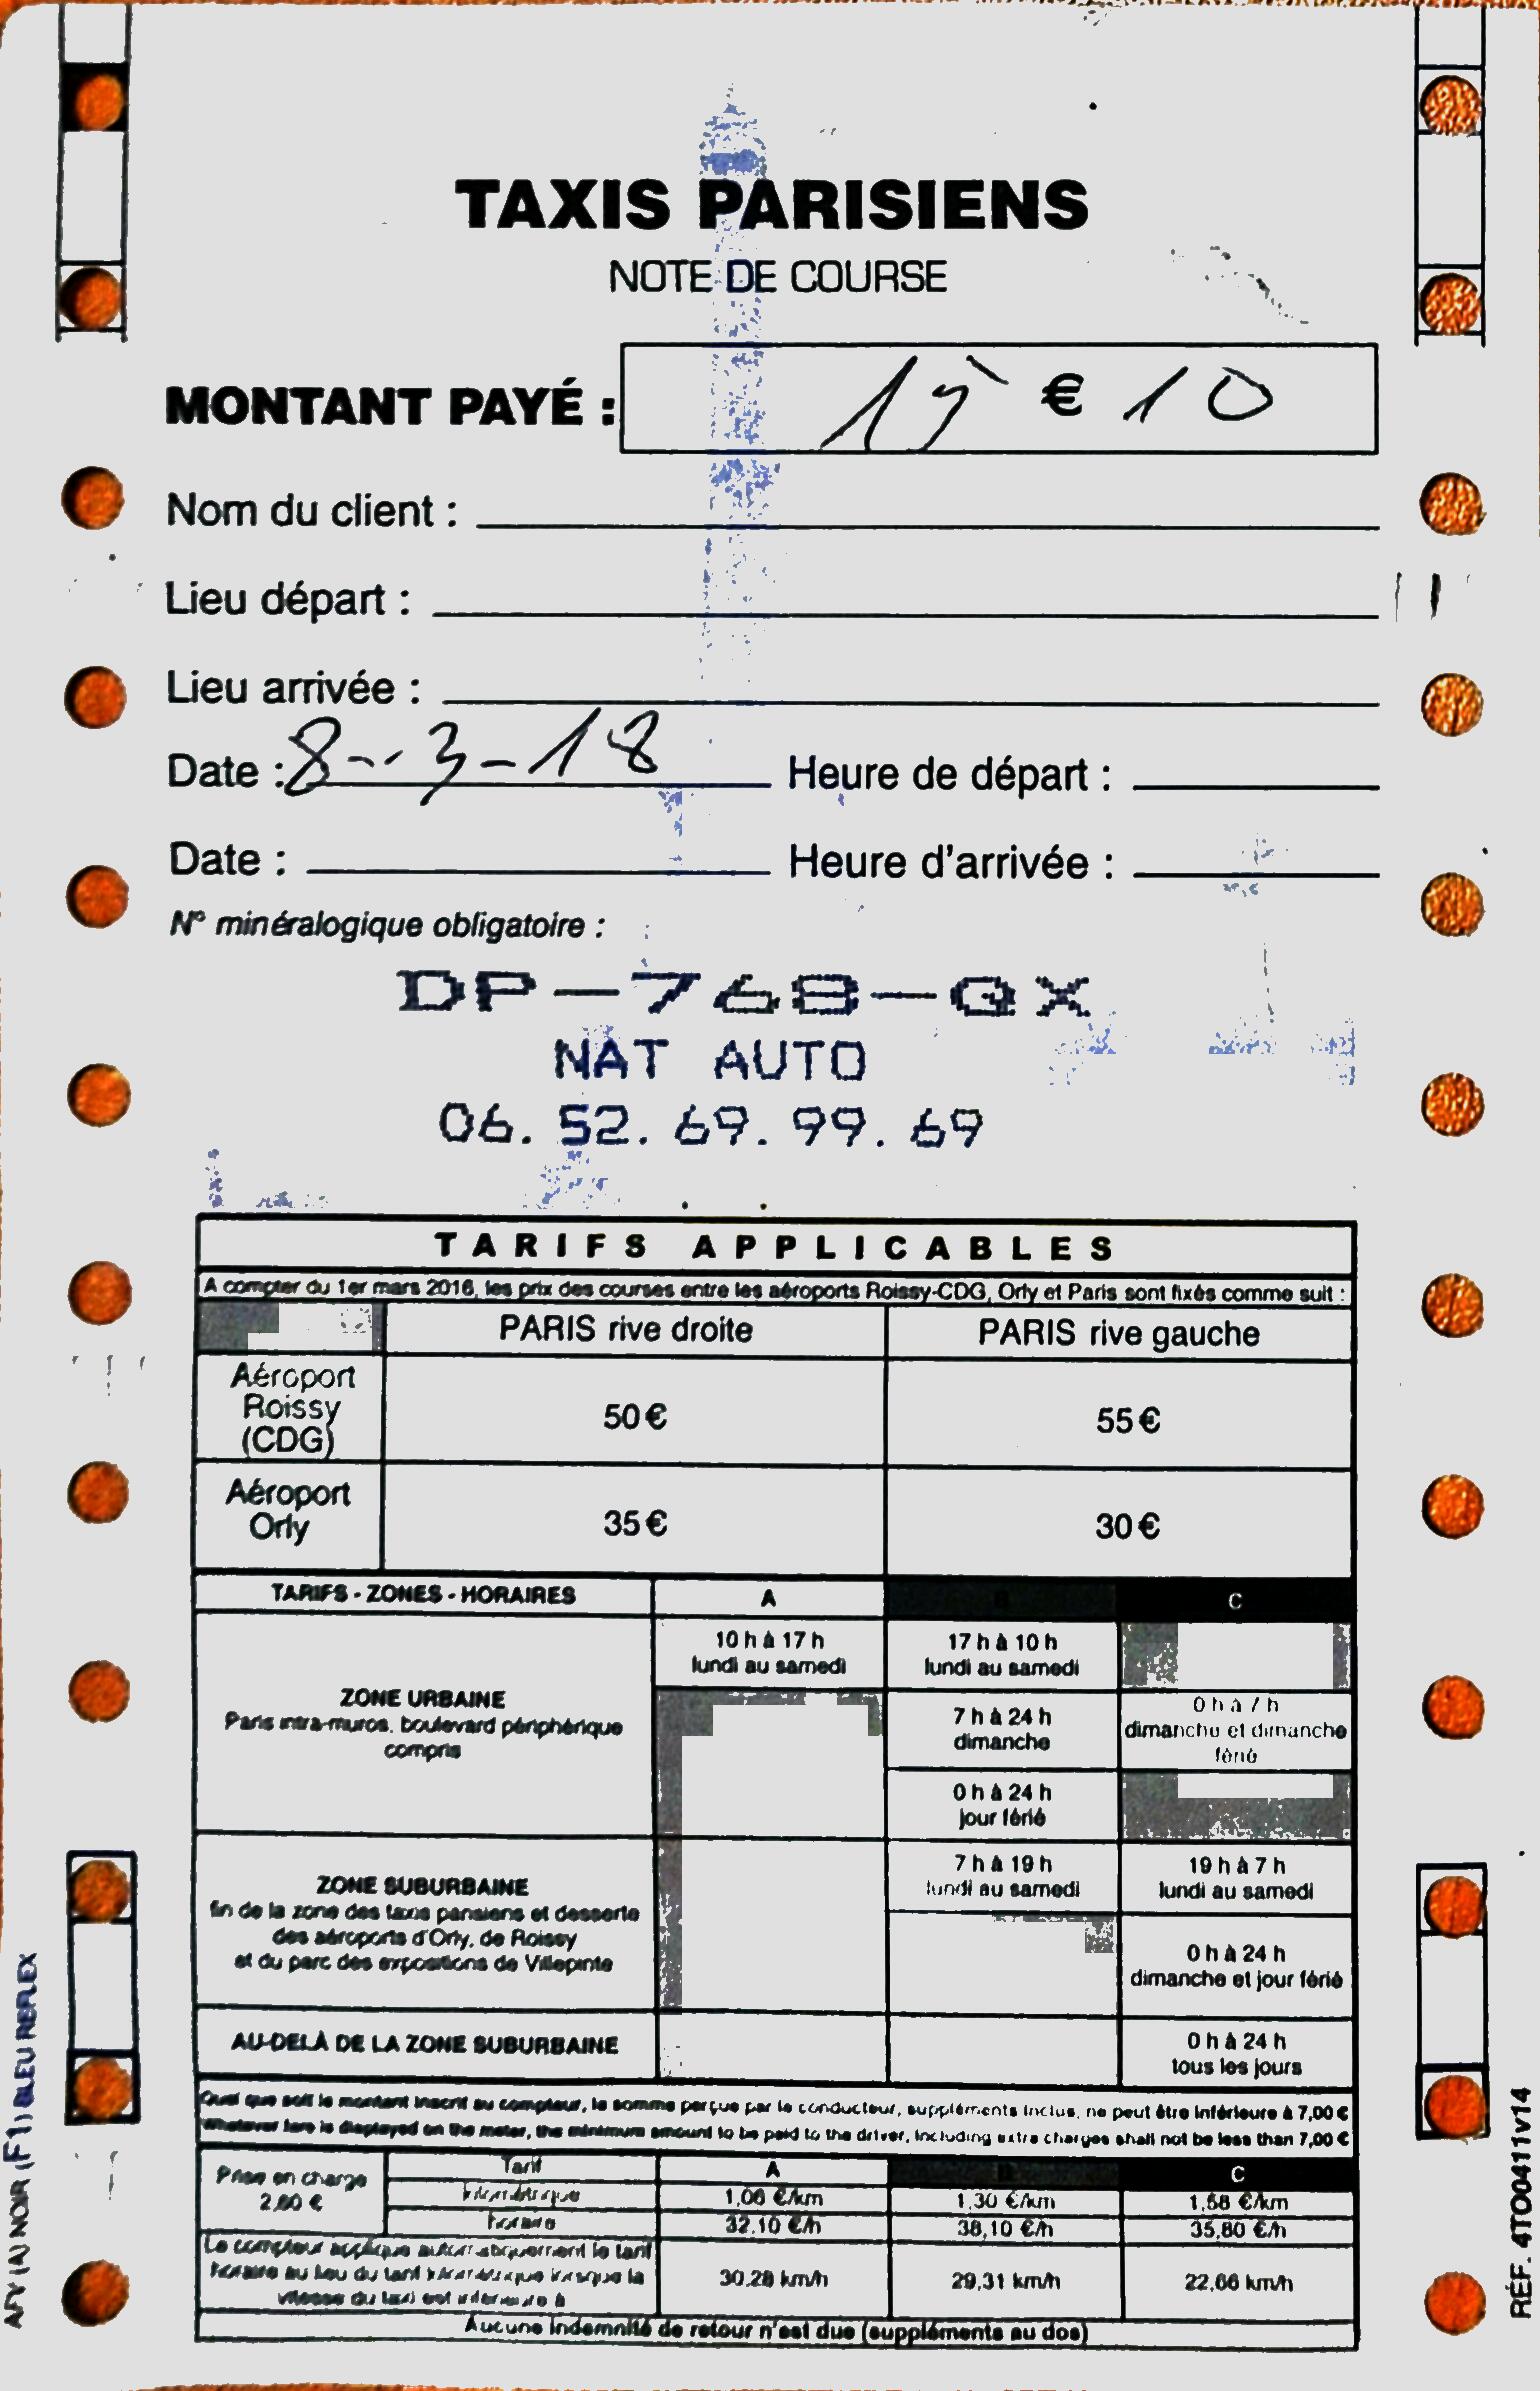 TAXIS PARISIENS
NOTE DE COURSE
MONTANT PAYÉ : 15 € 10
Nom du client :
Lieu départ :
Lieu arrivée :
Date : 8-3-18 Heure de départ :
Date : Heure d'arrivée :
N° minéralogique obligatoire :
DP-768-QX
NAT AUTO
06. 52. 69. 99. 69
TARIFS APPLICABLES
A compter du 1er mars 2016, les prix des courses entre les aéroports Roissy-CDG, Orly et Paris sont fixés comme suit :
PARIS rive droite PARIS rive gauche
Aéroport
Roissy
(CDG)
50 € 55 €
Aéroport
Orly
35 € 30 €
TARIFS - ZONES - HORAIRES A B C
ZONE URBAINE
Paris intra-muros, boulevard périphérique
compris
10 h à 17 h
lundi au samedi
17 h à 10 h
lundi au samedi
7 h à 24 h
dimanche
0 h à 7 h
dimanche et dimanche
férié
0 h à 24 h
jour férié
ZONE SUBURBAINE
fin de la zone des taxis parisiens et desserte
des aéroports d'Orly, de Roissy
et du parc des expositions de Villepinte
7 h à 19 h
lundi au samedi
19 h à 7 h
lundi au samedi
0 h à 24 h
dimanche et jour férié
AU-DELÀ DE LA ZONE SUBURBAINE
0 h à 24 h
tous les jours
Quel que soit le montant inscrit au compteur, la somme perçue par le conducteur, suppléments inclus, ne peut être inférieure à 7,00 €
Whatever fare is displayed on the meter, the minimum amount to be paid to the driver, including extra charges shall not be less than 7,00 €
Prise en charge
2,60 €
Tarif A B C
kilométrique 1,06 €/km 1,30 €/km 1,58 €/km
horaire 32,10 €/h 38,10 €/h 35,80 €/h
Le compteur applique automatiquement le tarif
horaire au lieu du tarif kilométrique lorsque la
vitesse du taxi est inférieure à
30,28 km/h 29,31 km/h 22,66 km/h
Aucune indemnité de retour n'est due (suppléments au dos)
AFV (A) NOIR (F1) BLEU REFLEX
RÉF. 4TO0411v14